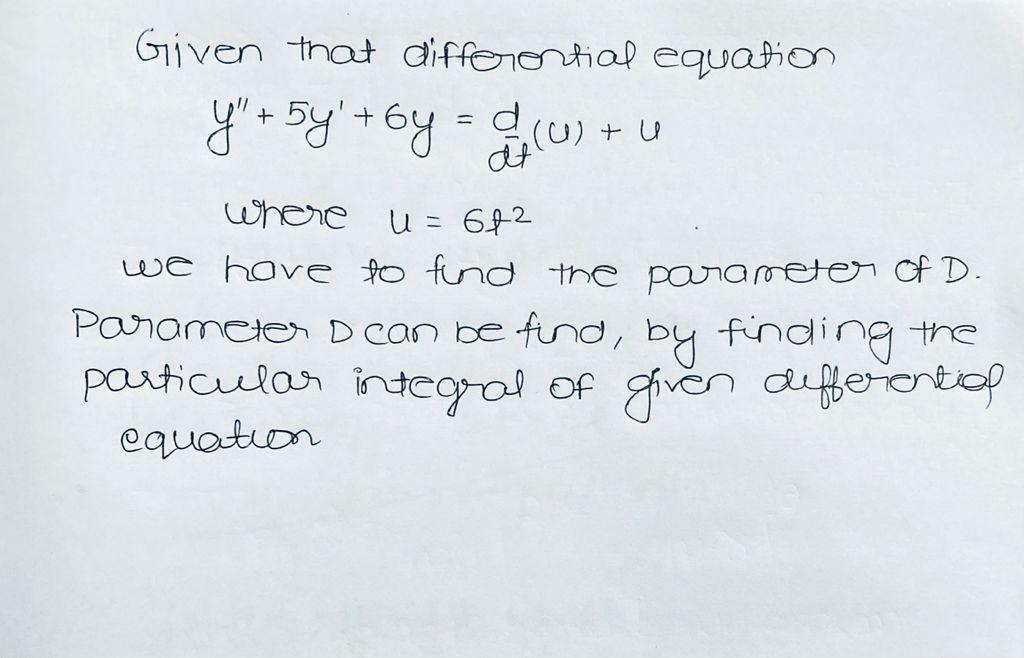 Given that differential equation
y" + 5y' + 6y = d/dt (u) + u
where u = 6t²
we have to find the parameter of D.
Parameter D can be find, by finding the
particular integral of given differential
equation